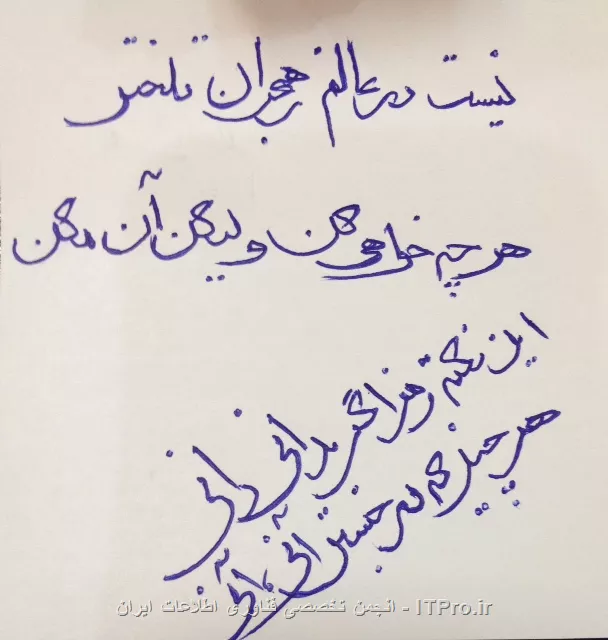 نیست در عالم ز هجران تلختر
هر چه خواهی کن ولیکن آن مکن
این نکته رمز اگر بدانی دانی
هر چیز که در جستن آنی، آنی
ITPro.ir - انجمن تخصصی فناوری اطلاعات ایران